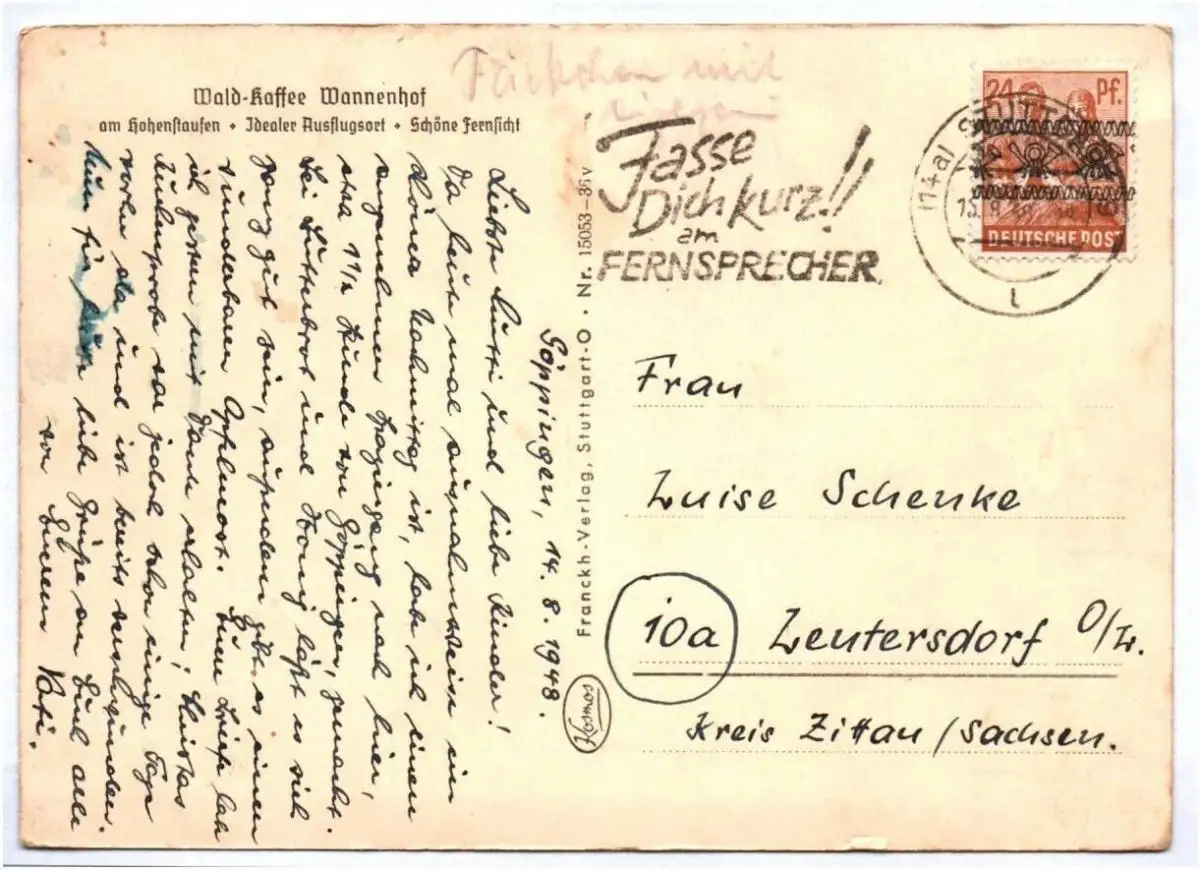 Wald-Kaffee Wannenhof
am Hohenstaufen • Idealer Ausflugsort • Schöne Fernsicht
mit
Fasse
Dich kurz!!
am
FERNSPRECHER
24 Pf.
DEUTSCHE POST
(14a) STUTTG
8.48
l
Göppingen, 14. 8. 1948.
Liebste Mutti und liebe Kinder!
Da heute mal ausnahmsweise ein
schöner Nachmittag ist, habe ich einen
angenehmen Spaziergang nach hier,
etwa 1½ Stunde von Göppingen, gemacht.
Bei Butterbrot und Honig läßt es sich
ganz gut sein, außerdem gibt es einen
wunderbaren Apfelmost. Eure Briefe hab
ich gestern mit Dank erhalten;
Kuchenprobe war jedoch schon einige Tage
vorher da und ist bereits verschwunden.
Nun für heute liebe Grüße an Euch alle
von Eurem Vati.
Franckh-Verlag, Stuttgart-O • Nr. 15053—36v
Kosmos
Frau
Luise Schenke
10a Leutersdorf O/L.
Kreis Zittau/Sachsen.